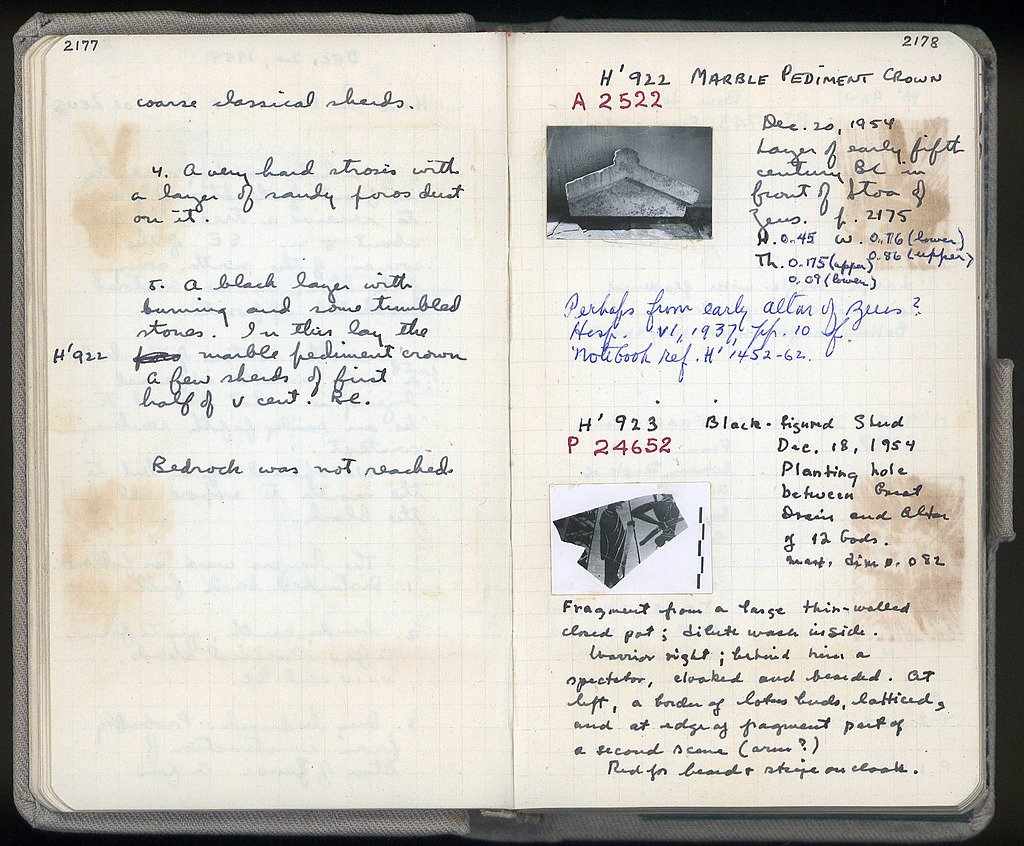 2177
coarse classical sherds.
4. A very hard strosis with
a layer of sandy poros dust
on it.
5. A black layer with
burning and some tumbled
stones. In this lay the
H'922 marble pediment crown
A few sherds of first
half of V cent. BC.
Bedrock was not reached.
2178
H'922 MARBLE PEDIMENT CROWN
A 2522
Dec. 20, 1954
Layer of early fifth
century BC in
front of Stoa of
Zeus. p. 2175
H. 0.45 W. 0.76 (lower)
0.86 (upper)
Th. 0.175 (upper)
0.09 (lower)
Perhaps from early altar of Zeus?
Hesp. VI, 1937, pp. 10 ff.
Notebook ref. H' 1452-62.
H' 923 Black-figured Sherd
P 24652
Dec. 18, 1954
Planting hole
between Great
Drain and Altar
of 12 Gods.
Max. dim 0.082
Fragment from a large thin-walled
closed pot; dilute wash inside.
Warrior right; behind him a
spectator, cloaked and bearded. At
left, a border of lotus buds, latticed,
and at edge of fragment part of
a second scene (arm?)
Red for beard + stripe on cloak.